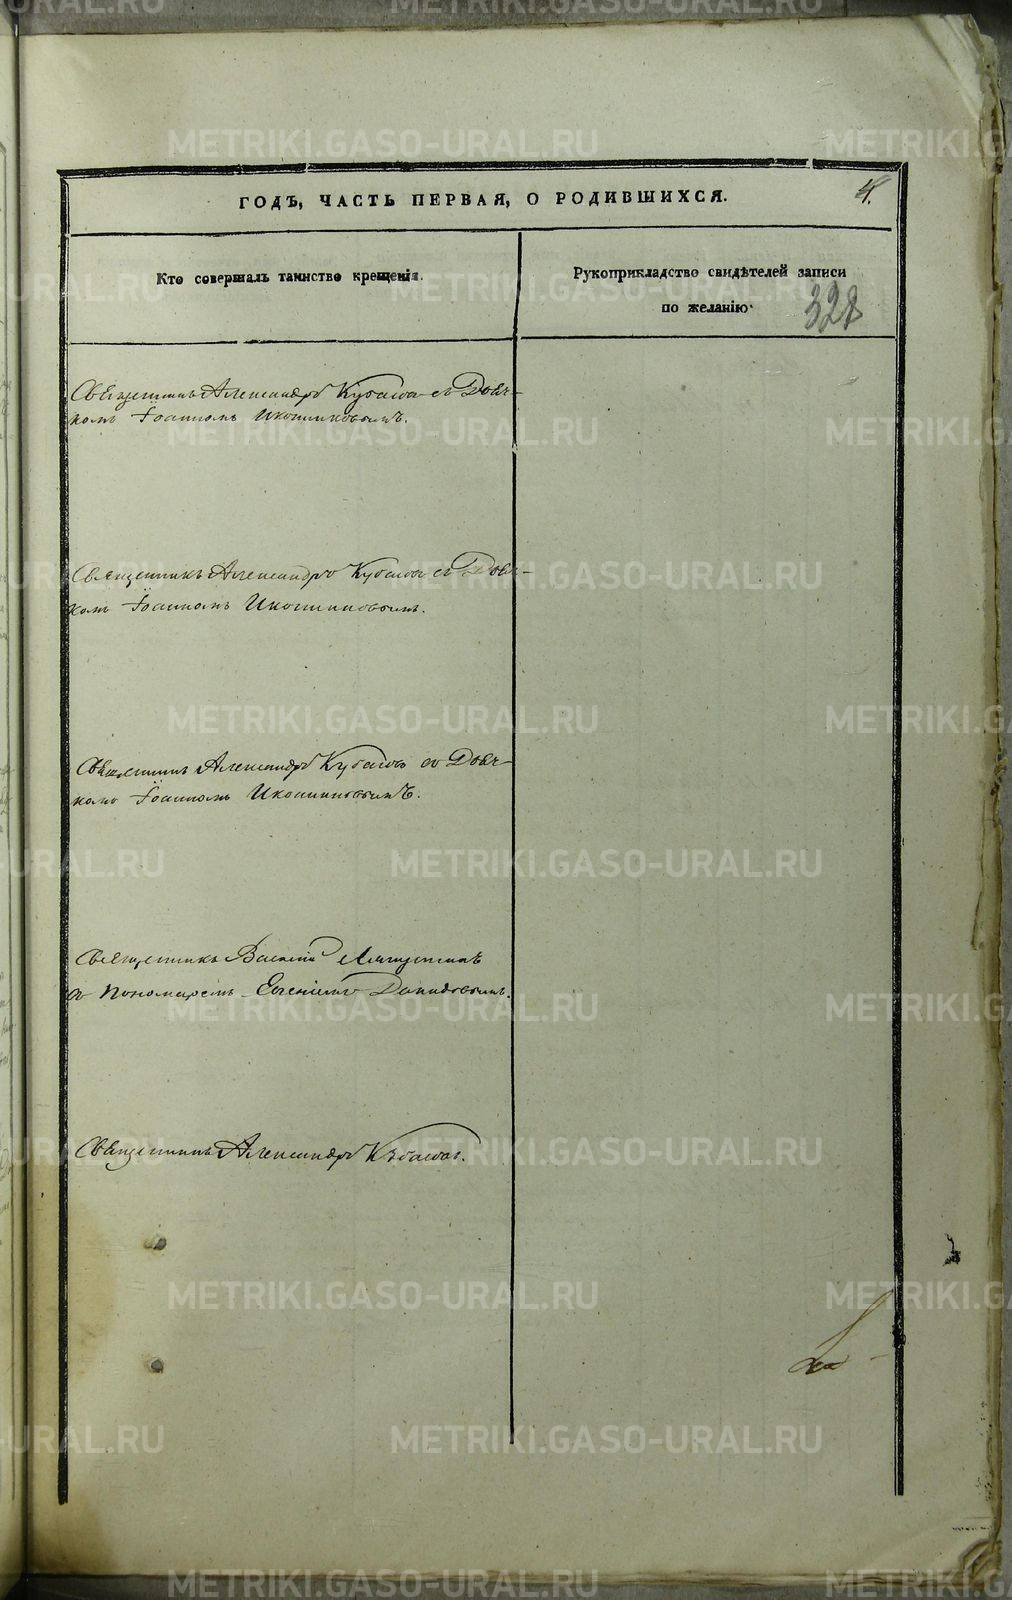 ГОДЪ, ЧАСТЬ ПЕРВАЯ, О РОДИВШИХСЯ.
4.
Кто совершалъ таинство крещенія.
Рукоприкладство свидѣтелей записи
по желанію.
328
Священникъ Александръ Кубасовъ съ Дьяч-
комъ Іоанномъ Иконниковымъ.
Священникъ Александръ Кубасовъ съ Дьяч-
комъ Іоанномъ Иконниковымъ.
Священникъ Александръ Кубасовъ съ Дьяч-
комъ Іоанномъ Иконниковымъ.
Священникъ Василій
съ Пономаремъ Евгеніемъ Давидовымъ.
Священникъ Александръ Кубасовъ.
METRIKI.GASO-URAL.RU